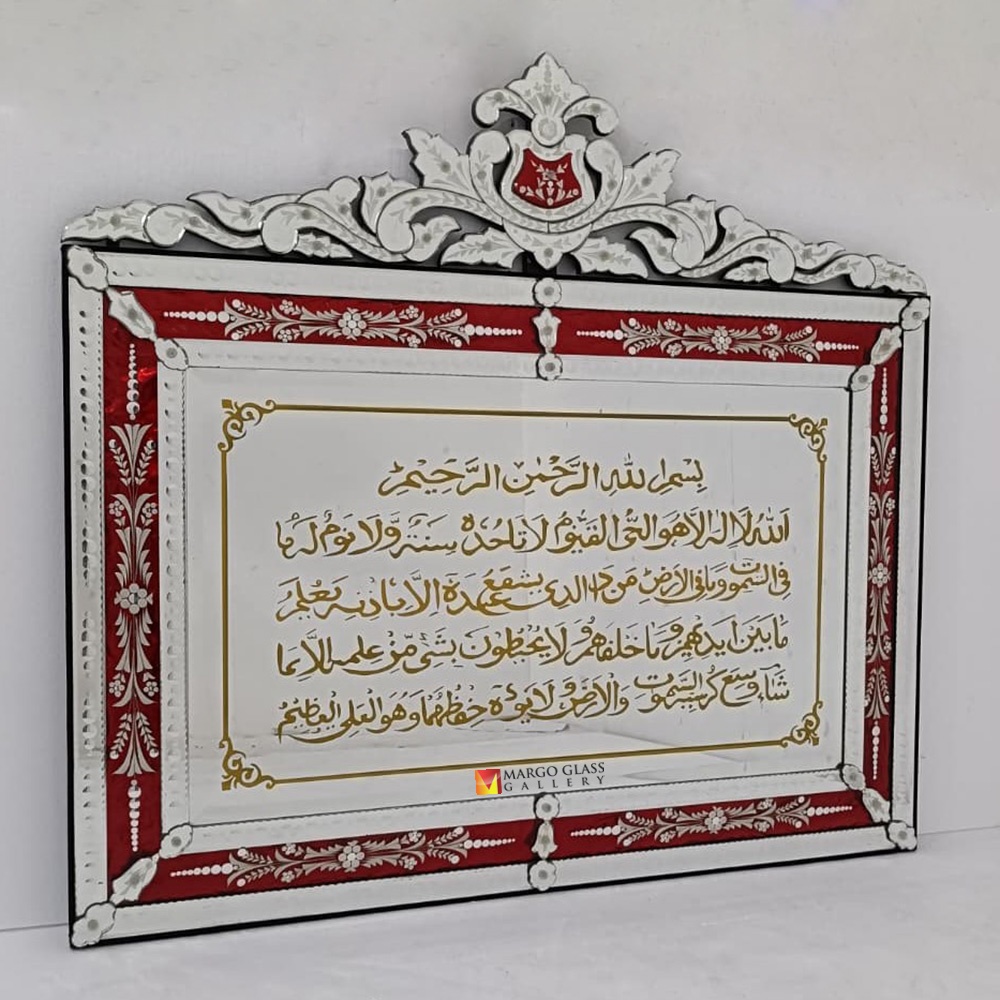 بِسْمِ اللهِ الرَّحْمٰنِ الرَّحِيْمِ
اَللهُ لَا اِلٰهَ اِلَّا هُوَ الْحَىُّ الْقَيُّوْمُ لَا تَاْخُذُهٗ سِنَةٌ وَّلَا نَوْمٌ لَهٗ مَا
فِى السَّمٰوٰتِ وَمَا فِى الْاَرْضِ مَنْ ذَا الَّذِىْ يَشْفَعُ عِنْدَهٗ اِلَّا بِاِذْنِهٖ يَعْلَمُ
مَا بَيْنَ اَيْدِيْهِمْ وَمَا خَلْفَهُمْ وَلَا يُحِيْطُوْنَ بِشَىْءٍ مِّنْ عِلْمِهٖ اِلَّا بِمَا
شَاءَ وَسِعَ كُرْسِيُّهُ السَّمٰوٰتِ وَالْاَرْضَ وَلَا يَئُوْدُهٗ حِفْظُهُمَا وَهُوَ الْعَلِىُّ الْعَظِيْمُ
MARGO GLASS
GALLERY